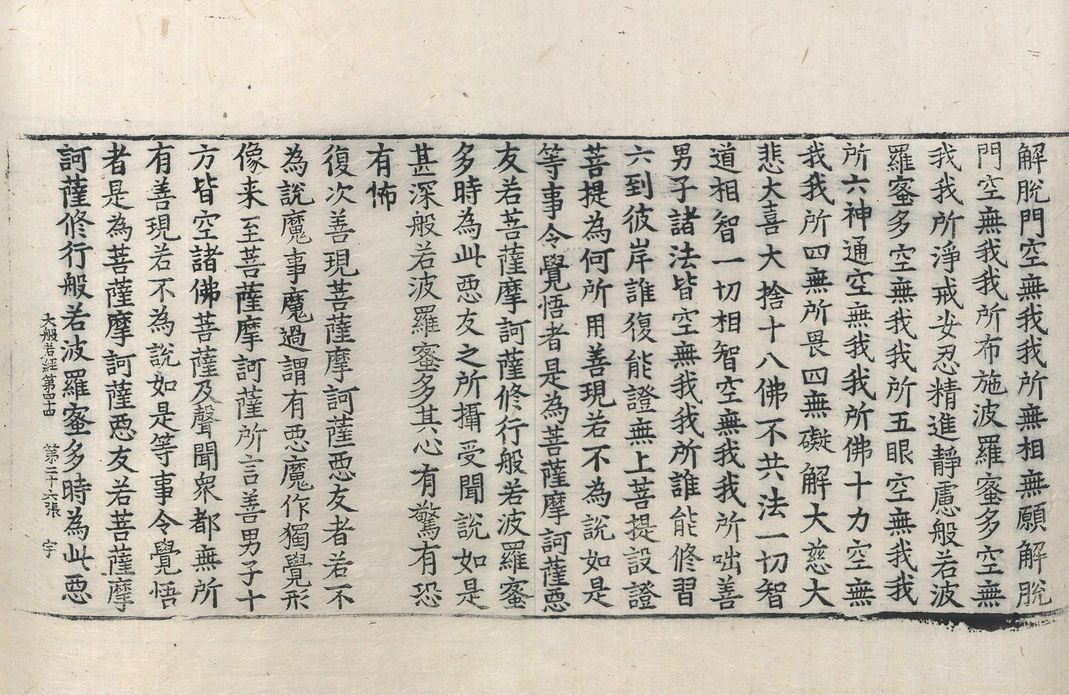 解脫門空無我我所無相無願解脫
門空無我我所布施波羅蜜多空無
我我所淨戒安忍精進靜慮般若波
羅蜜多空無我我所五眼空無我我
所六神通空無我我所佛十力空無
我我所四無所畏四無礙解大慈大
悲大喜大捨十八佛不共法一切智
道相智一切相智空無我我所咄善
男子諸法皆空無我我所誰能修習
六到彼岸誰復能證無上菩提設證
菩提為何所用善現若不為說如是
等事令覺悟者是為菩薩摩訶薩悪
友若菩薩摩訶薩修行般若波羅蜜
多時為此悪友之所攝受聞說如是
甚深般若波羅蜜多其心有驚有恐
有怖
復次善現菩薩摩訶薩悪友者若不
為說魔事魔過謂有悪魔作獨覺形
像来至菩薩摩訶薩所言善男子十
方皆空諸佛菩薩及聲聞眾都無所
有善現若不為說如是等事令覺悟
者是為菩薩摩訶薩悪友若菩薩摩
訶薩修行般若波羅蜜多時為此悪
大般若經第四十四 第二十六張 宇